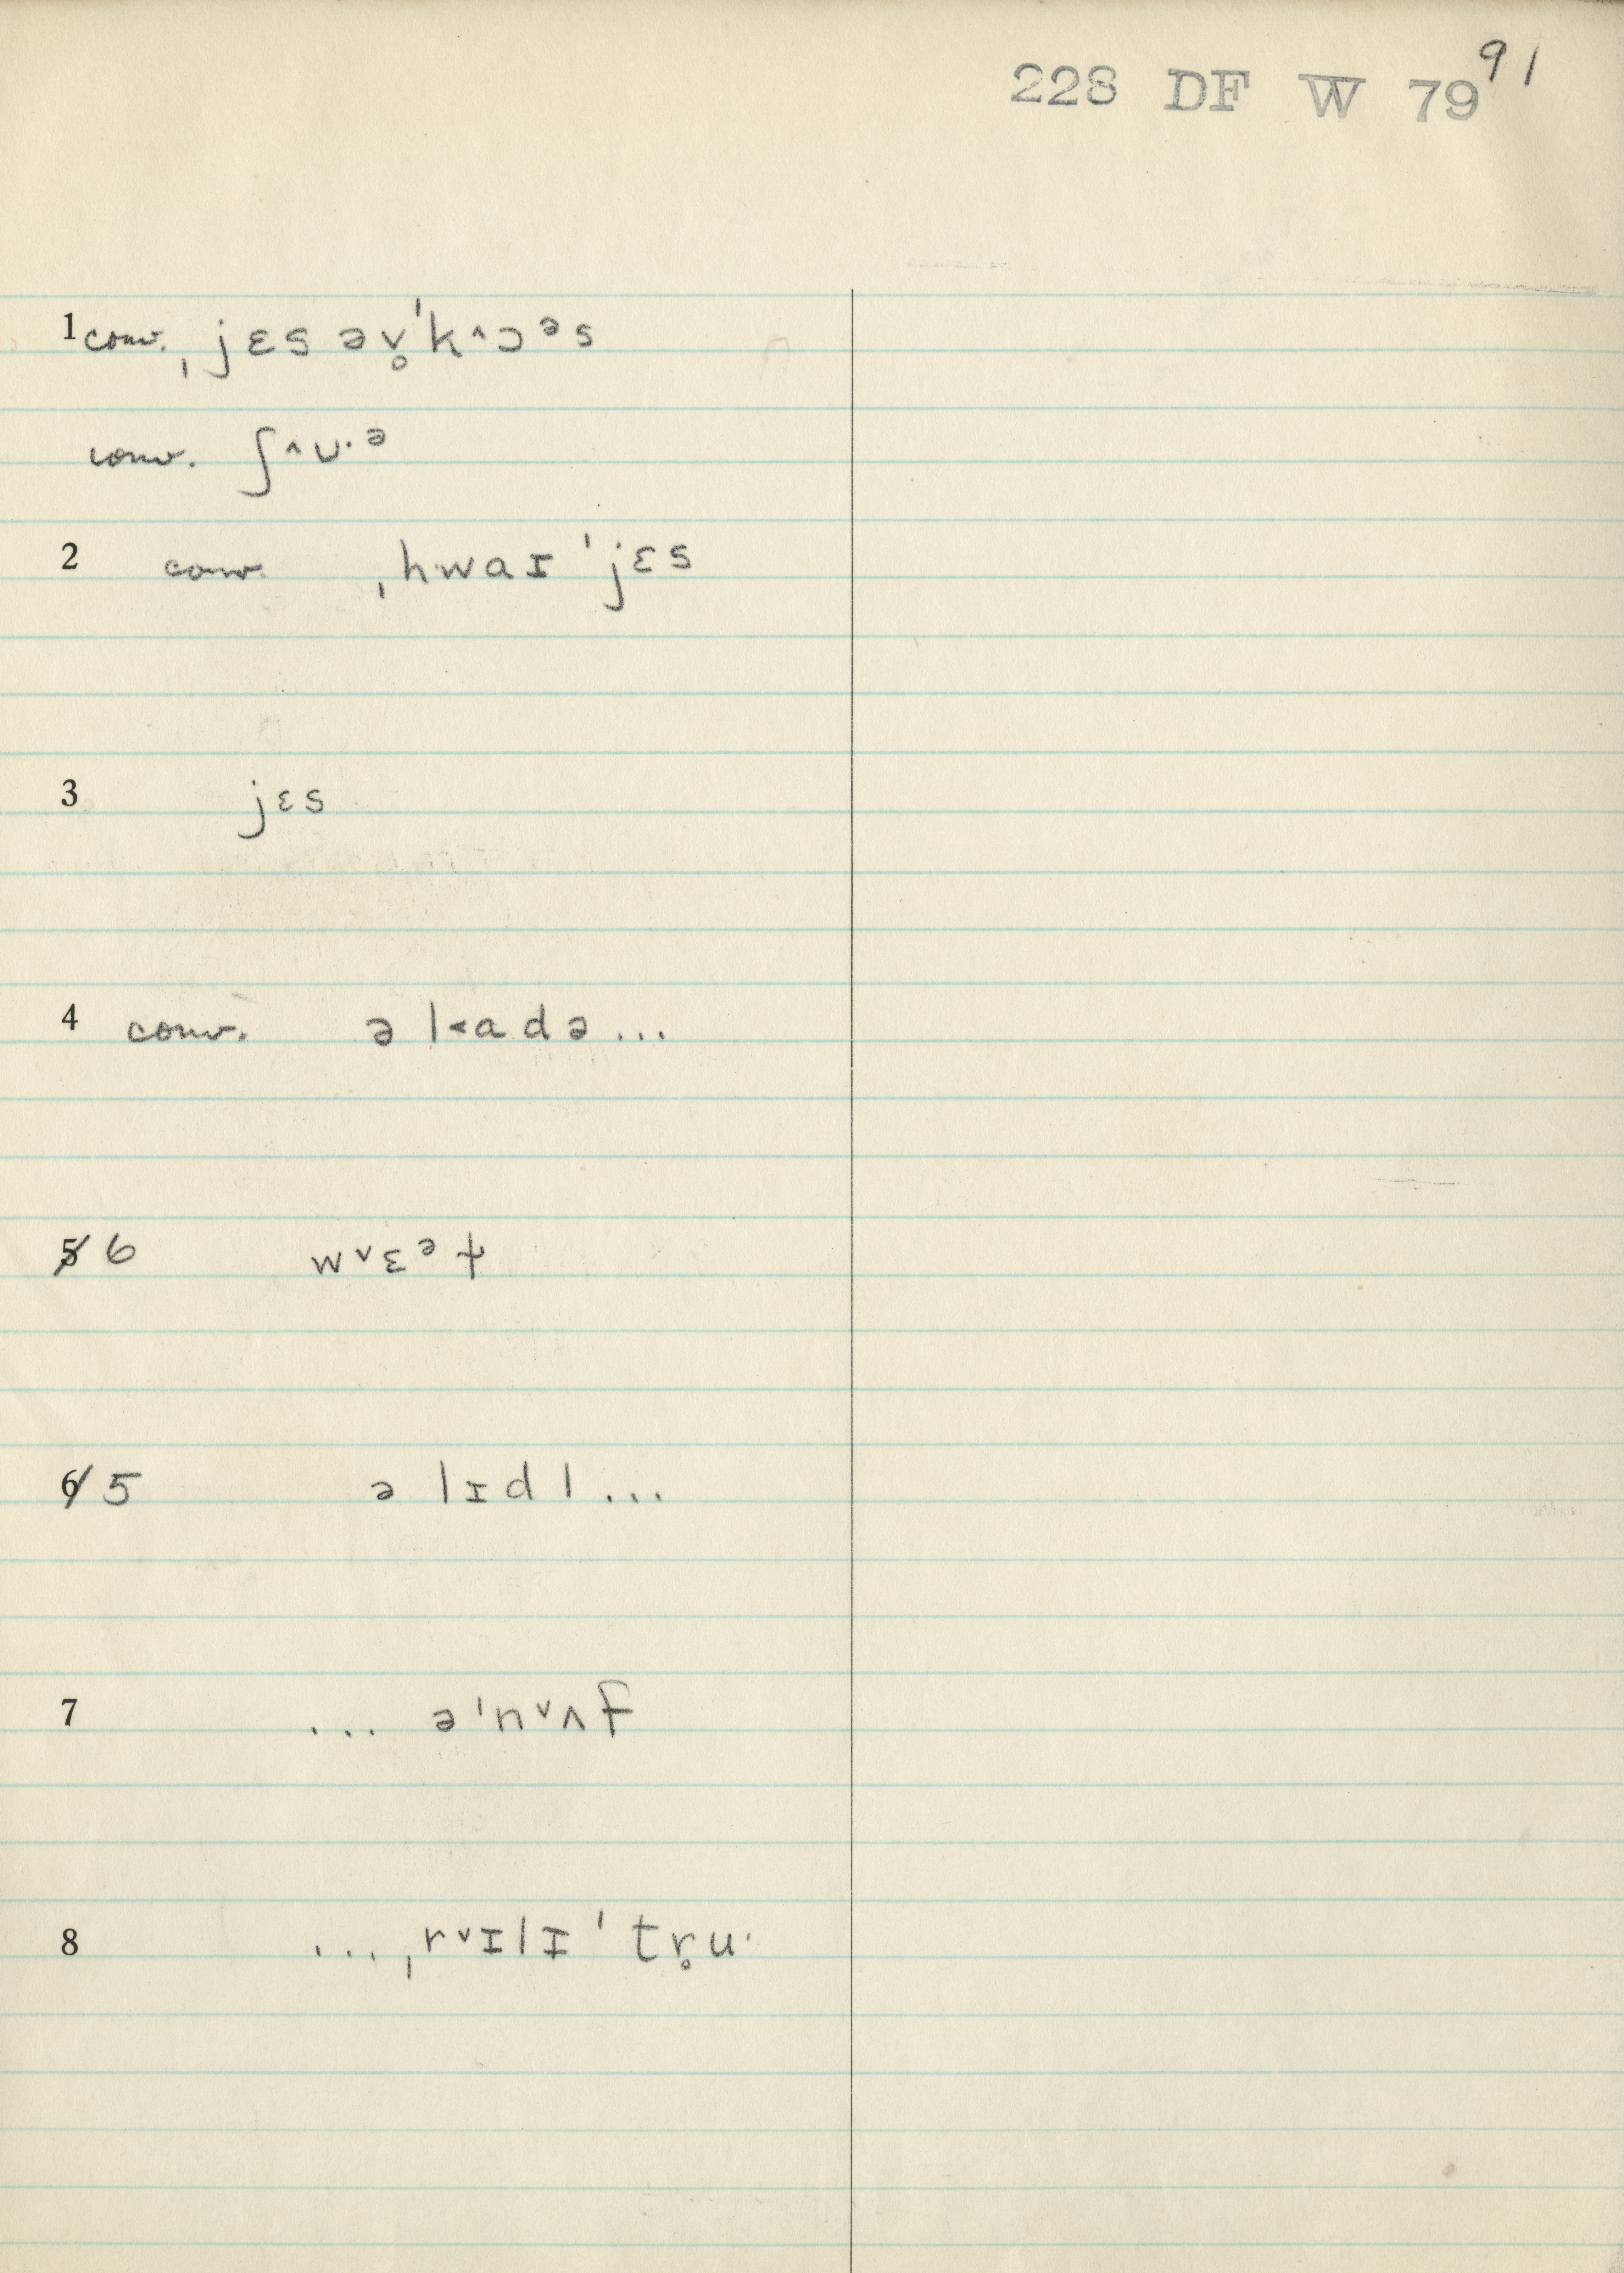 228 DF W 79 91
1 conv. ˌjɛs əv̥ˈk˄ɔᵊs
conv. ʃ˄ʊ·ᵊ
2 conv. ˌhwaɪˈjɛs
3 jɛs
4 conv. ə k˂adə...
5 6 w˅ɛᵊɫ
6 5 ə lɪdl...
7 ... əˈn˅ʌf
8 ... ˌr˅ɪlɪˈtr̥u·